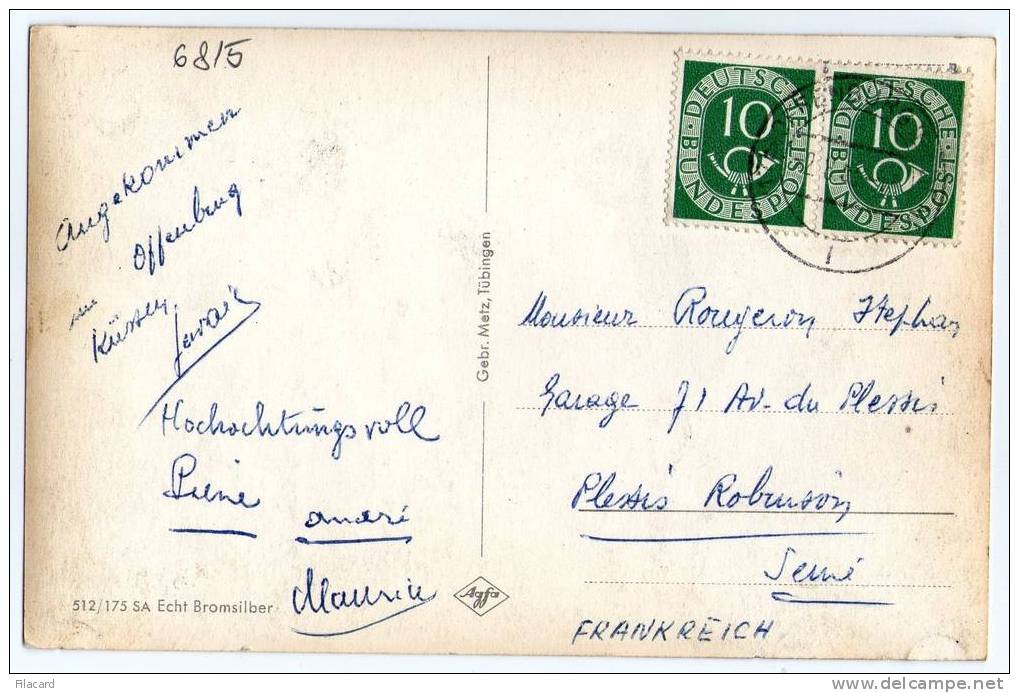 6815
Angekommen
in Offenburg
Küssen
Hochachtungsvoll
Pierre
André
Maurice
512/175 SA Echt Bromsilber
Gebr. Metz, Tübingen
Agfa
DEUTSCHE BUNDESPOST
10
DEUTSCHE BUNDESPOST
10
Monsieur Rougeron Stephan
Garage 71 Av. du Plessis
Plessis Robinson
Seine
FRANKREICH
Filacard
www.delcampe.net